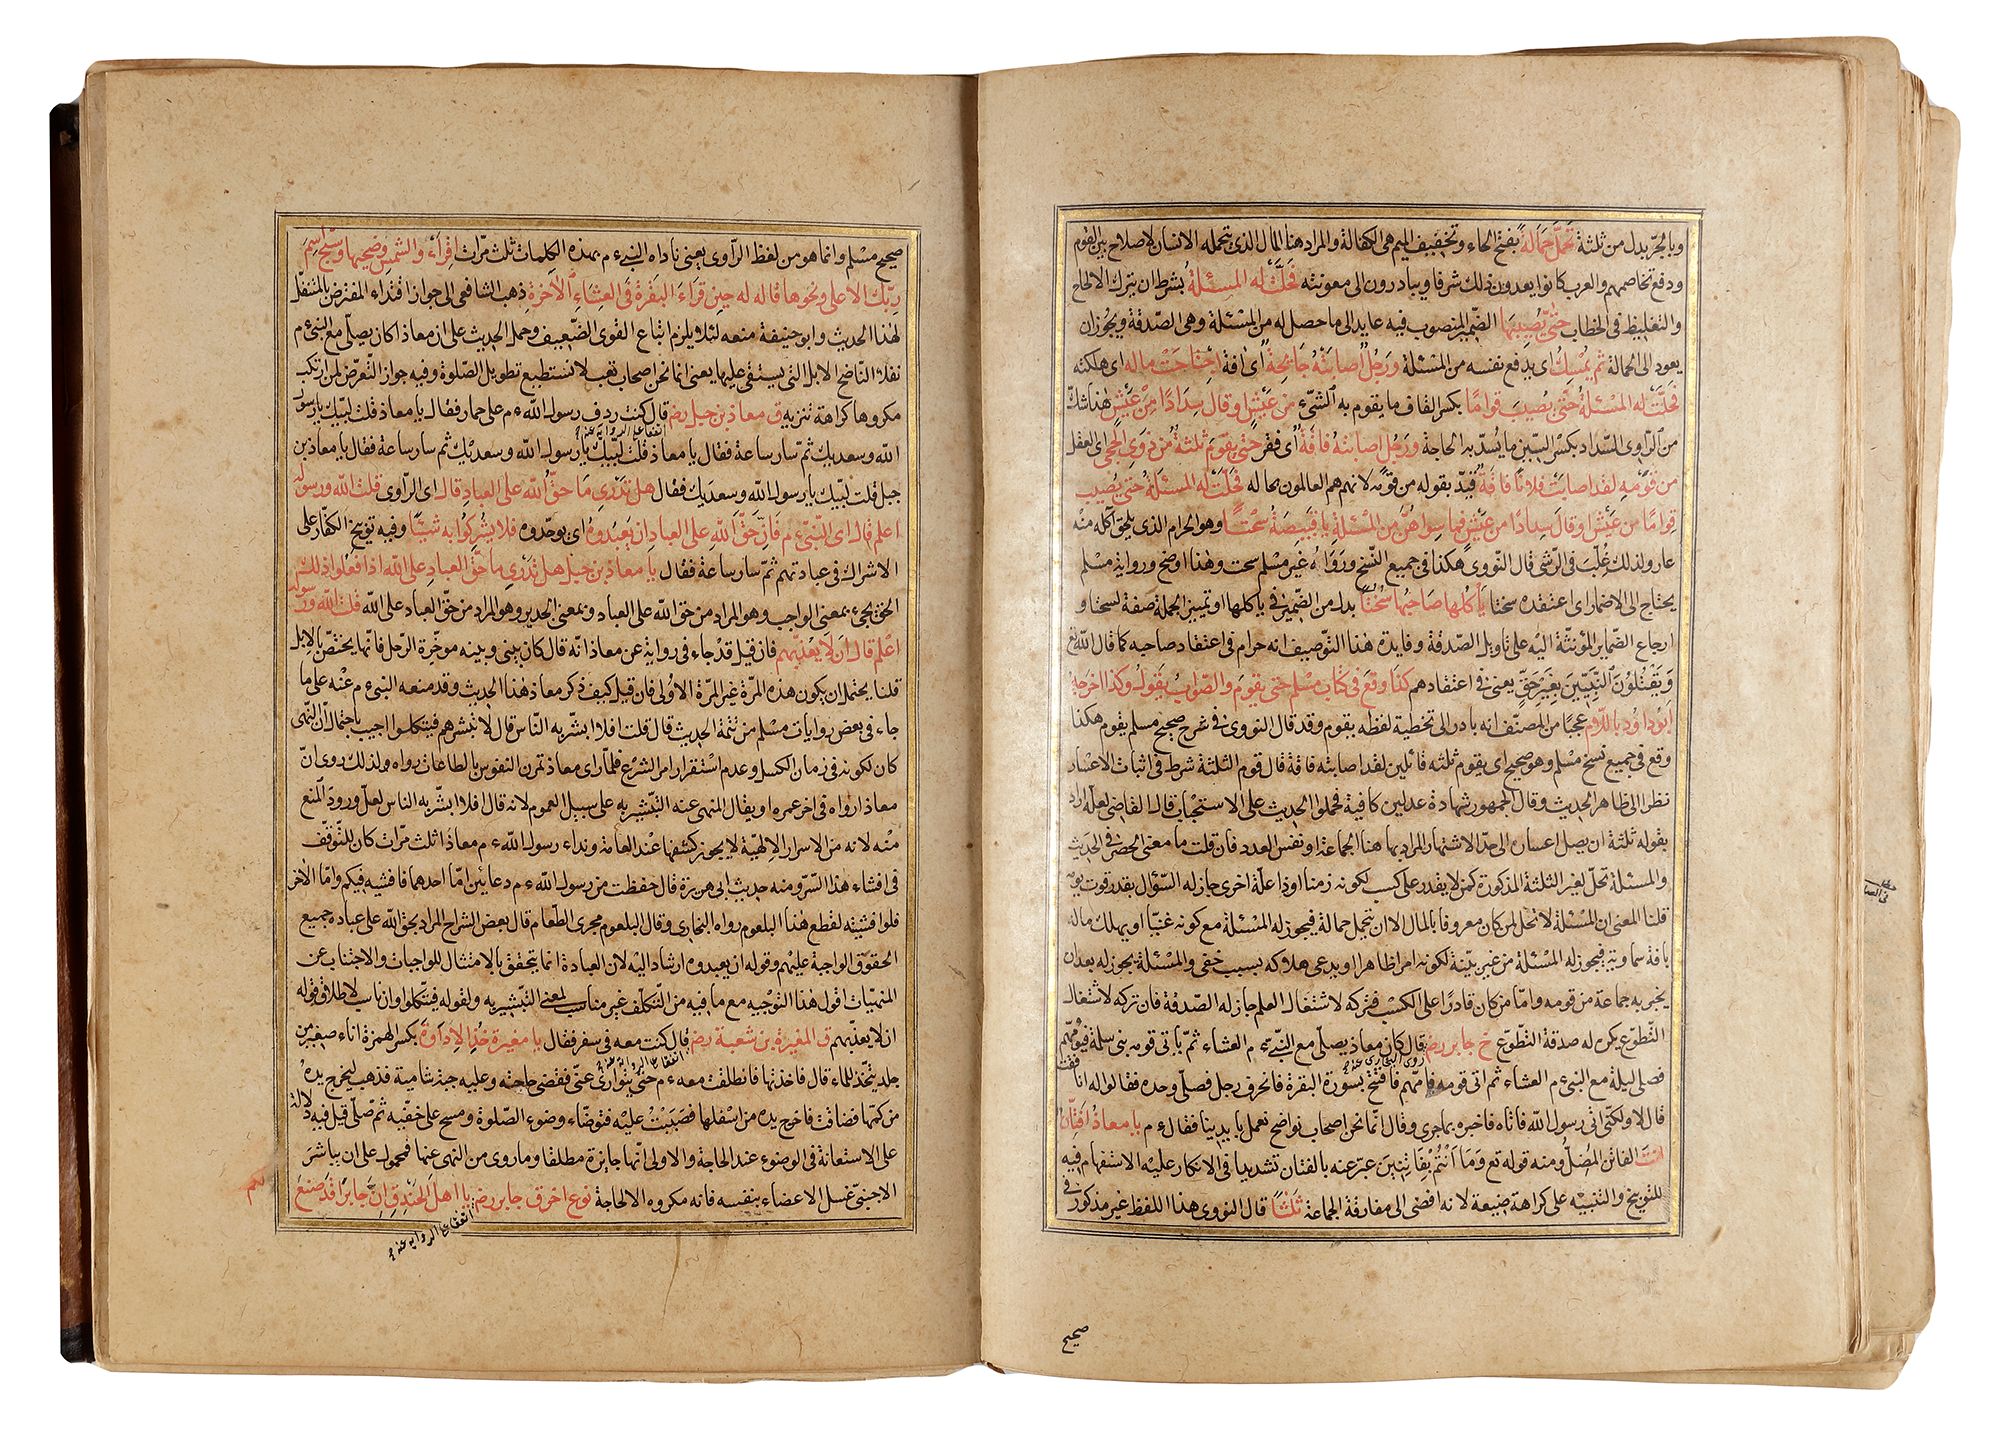 وبالجرّ بدل من ثلثة تحمّل حمالة بفتح الحاء وتخفيف الميم هى الكفالة والمراد هنا المال الذى يتحمله الانسان لاصلاح بين القوم
ودفع تخاصمهم والعرب كانوا يعدون ذلك شرفا ويبادرون الى معونته فحلّت له المسئلة بشرط ان يترك الالحاح
والتغليظ فى الخطاب حتى يصيبها الضمير المنصوب فيه عايد الى ما حصل له من المسئلة وهى الصدقة ويجوز ان
يعود الى الحمالة ثم يمسك اى يدفع نفسه من المسئلة ورجل اصابته جائحة اى افة اجتاحت ماله اى اهلكته
فحلّت له المسئلة حتى يصيب قواما بكسر القاف ما يقوم به الشىء من عيش او قال سدادا من عيش هذا شك
من الراوى السداد بكسر السين ما يسدّ به الحاجة ورجل اصابته فاقة اى فقر حتى يقوم ثلثة من ذوى الحجى اى العقل
من قومه لقد اصابت فلانا فاقة قيّد بقوله من قومه لانهم هم العالمون بحاله فحلّت له المسئلة حتى يصيب
قواما من عيش او قال سدادا من عيش فما سواهن من المسئلة يا قبيصة سحتا وهو الحرام الذى يلحق آكله منه
عار ولذلك غلب فى الرشى قال النووى هكذا فى جميع النسخ ورواه غير مسلم سحت وهذا اوضح ورواية مسلم
يحتاج الى الاضمار اى اعتقده سحتا يأكلها صاحبها سحتا بدل من الضمير فى يأكلها او تمييز الجملة صفة لسحتا و
ارجاع الضماير المؤنثة اليه على تاويل الصدقة وفايدة هذا التوصيف انه حرام فى اعتقاد صاحبه كما قال الله تع
ويقتلون النبيين بغير حق يعنى فى اعتقادهم كذا وقع فى كتاب مسلم حتى يقوم والصواب يقول وكذا اخرجه
ابو داود باللام عجبا من المصنف انه بادر الى تخطية لفظه بقوم وقد قال النووى فى شرح صحيح مسلم يقوم هكذا
وقع فى جميع نسخ مسلم وهو صحيح اى يقوم ثلثه قائلين لقد اصابته فاقة قال قوم الثلثة شرط فى اثبات الاعسار
نظرا الى ظاهر الحديث وقال الجمهور شهادة عدلين كافية فحملوا الحديث على الاستحباب قال القاضى لعله اراد
بقوله ثلثة ان يصل اعساره الى حدّ الاشتهار المراد بها هنا الجماعة او نفس العدد فان قلت ما معنى الحصر فى الحديث
والمسئلة تحلّ لغير الثلثة المذكورة كمن لا يقدر على كسب لكونه زمنا او ذا علة اخرى جاز له السؤال بقدر قوت يومه
قلنا المعنى ان المسئلة لا تحل لمن كان معروفا بالمال الا ان يتحمل حمالة فيجوز له المسئلة مع كونه غنيّا او يهلك ماله
بافة سماوية فيجوز له المسئلة من غير بينة لكونه امرا ظاهرا او يدعى هلاكه بسبب خفى والمسئلة يجوز له بعد ان
يخبر به جماعة من قومه وامّا من كان قادرا على الكسب فتركه لاشتغال العلم جاز له الصدقة فان تركه لاشتغال
التطوع يكره له صدقة التطوع خ جابر رض قال كان معاذ يصلّى مع النبى ءم العشاء ثم يأتى قومه بنى سلمة فيؤمّهم
روى البخارى عنه
فصلى ليلة مع النبى ءم العشاء ثم اتى قومه فامّهم فافتتح بسورة البقرة فانحرف رجل فصلّى وحده فقالوا له انافقت
قال لا ولكنى اتى رسول الله فاتاه فاخبره بما جرى وقال انّما نحن اصحاب نواضح نعمل بايدينا فقال ءم يا معاذ افتّان
انت الفاتن المضل ومنه قوله تع وما انتم بفاتنين عبّر عنه بالفتان تشديدا فى الانكار عليه الاستفهام فيه
للتوبيخ والتنبيه على كراهة صنيعه لانه افضى الى مفارقة الجماعة ثلثا قال النووى هذا اللفظ غير مذكور فى
صحيح
صحيح مسلم وانما هو من لفظ الراوى يعنى ناداه النبى ءم بهذه الكلمات ثلث مرّات اقرأ والشمس وضحيها وسبح اسم
ربك الاعلى ونحوها قاله له حين قراء البقرة فى العشاء الآخرة ذهب الشافعى الى جواز اقتداء المفترض بالمتنفل
لهذا الحديث وابو حنيفة منعه لئلا يلزم اتباع القوى الضعيف وحمل الحديث على ان معاذا كان يصلّى مع النبى ءم
نفلا الناضح الابل التى يستقى عليها يعنى انما نحن اصحاب تعب لا نستطيع تطويل الصلوة وفيه جواز التعرض لمن ارتكب
مكروها كراهة تنزيه ق معاذ بن جبل رض قال كنت ردف رسول الله ءم على حمار فقال يا معاذ قلت لبيك يا رسول
اتفقا على الرواية عنه
الله وسعديك ثم سار ساعة فقال يا معاذ قلت لبيك يا رسول الله وسعديك ثم سار ساعة فقال يا معاذ بن
جبل قلت لبيك يا رسول الله وسعديك فقال هل تدرى ما حق الله على العباد قال اى الراوى قلت الله ورسوله
اعلم قال اى النبى ءم فان حق الله على العباد ان يعبدوه اى يوحدوه فلا يشركوا به شيئا وفيه توبيخ الكفار على
الاشراك فى عبادتهم ثم سار ساعة فقال يا معاذ بن جبل هل تدرى ما حق العباد على الله اذا فعلوا ذلك
الحق يجىء بمعنى الواجب وهو المراد من حق الله على العباد وبمعنى الجدير وهو المراد من حق العباد على الله قلت الله ورسوله
اعلم قال ان لا يعذبهم فان قيل قد جاء فى رواية عن معاذ انه قال كان بينى وبينه موخرة الرحل فانها يختص بالابل
قلنا يحتمل ان يكون هذه المرّة غير المرّة الاولى فان قيل كيف ذكر معاذ هذا الحديث وقد منعه النبى ءم عنه على ما
جاء فى بعض روايات مسلم من تتمة الحديث قال قلت افلا ابشر به الناس قال لا تبشرهم فيتكلوا اجيب باحتمال ان النهى
كان لكونه فى زمان الكسل وعدم استقرار امر الشرع فلما راى معاذ تمرن النفوس بالطاعات رواه ولذلك روى ان
معاذا رواه فى اخر عمره او يقال المنهى عنه التبشير به على سبيل العموم لانه قال افلا ابشر به الناس لعل ورود المنع
منه لانه من الاسرار الالهية لا يجوز كشفها عند العامة ونداء رسول الله ءم معاذا ثلث مرّات كان للتوقف
فى افشاء هذا السر ومنه حديث ابى هريرة قال حفظت من رسول الله ءم دعائين امّا احدهما فافشيه فيكم وامّا الاخر
فلو افشيته لقطع هذا البلعوم رواه البخارى وقال البلعوم مجرى الطعام قال بعض الشراح المراد بحق الله على عباده جميع
الحقوق الواجبة عليهم وقوله ان يعبدوه ارشاد اليه لان العبادة انما يتحقق بالامتثال للواجبات والاجتناب عن
المنهيات اقول هذا التوجيه مع ما فيه من التكلف غير مناسب لمعنى التبشير به ولقوله فيتكلوا وان ناسب لاطلاق قوله
ان لا يعذبهم ق المغيرة بن شعبة رض قال كنت معه فى سفر فقال يا مغيرة خذ الاداوة بكسر الهمزة اناء صغير من
اتفقا على الرواية عنه
جلد يتخذ للماء قال فاخذتها فانطلقت معه ءم حتى توارى عنى فقضى حاجته وعليه جبة شامية فذهب ليخرج يده
من كمها فضاقت فاخرج يده من اسفلها فصببت عليه فتوضاء وضوء الصلوة ومسح على خفيه ثم صلّى قيل فيه دلالة
على الاستعانة فى الوضوء عند الحاجة والاولى انها جايزة مطلقا وما روى من النهى عنها فمحمول على ان يباشر
الاجنبى غسل الاعضاء بنفسه فانه مكروه الا لحاجة نوع اخر ق جابر رض يا اهل الخندق ان جابرا قد صنع
لكم
اتفقا على الرواية عنه